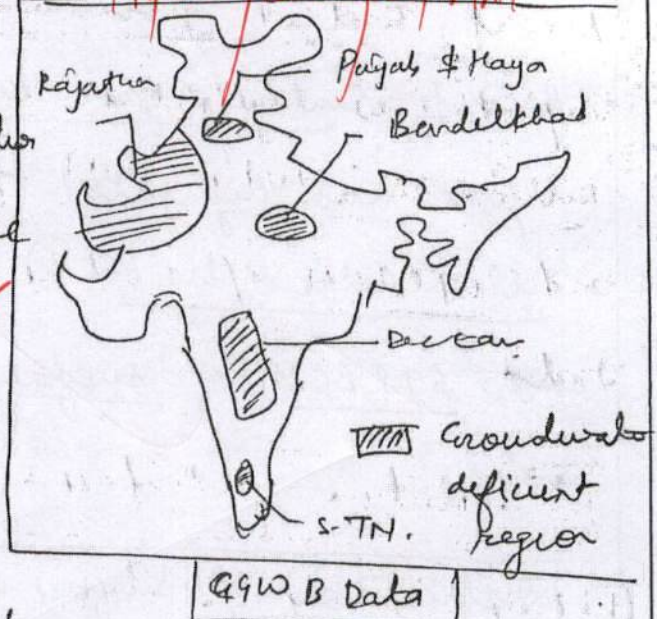 Rajasthan
Punjab & Haya
Bundelkhad
Deccan
Groundwater
deficient
region
S-TN.
CGW B Data